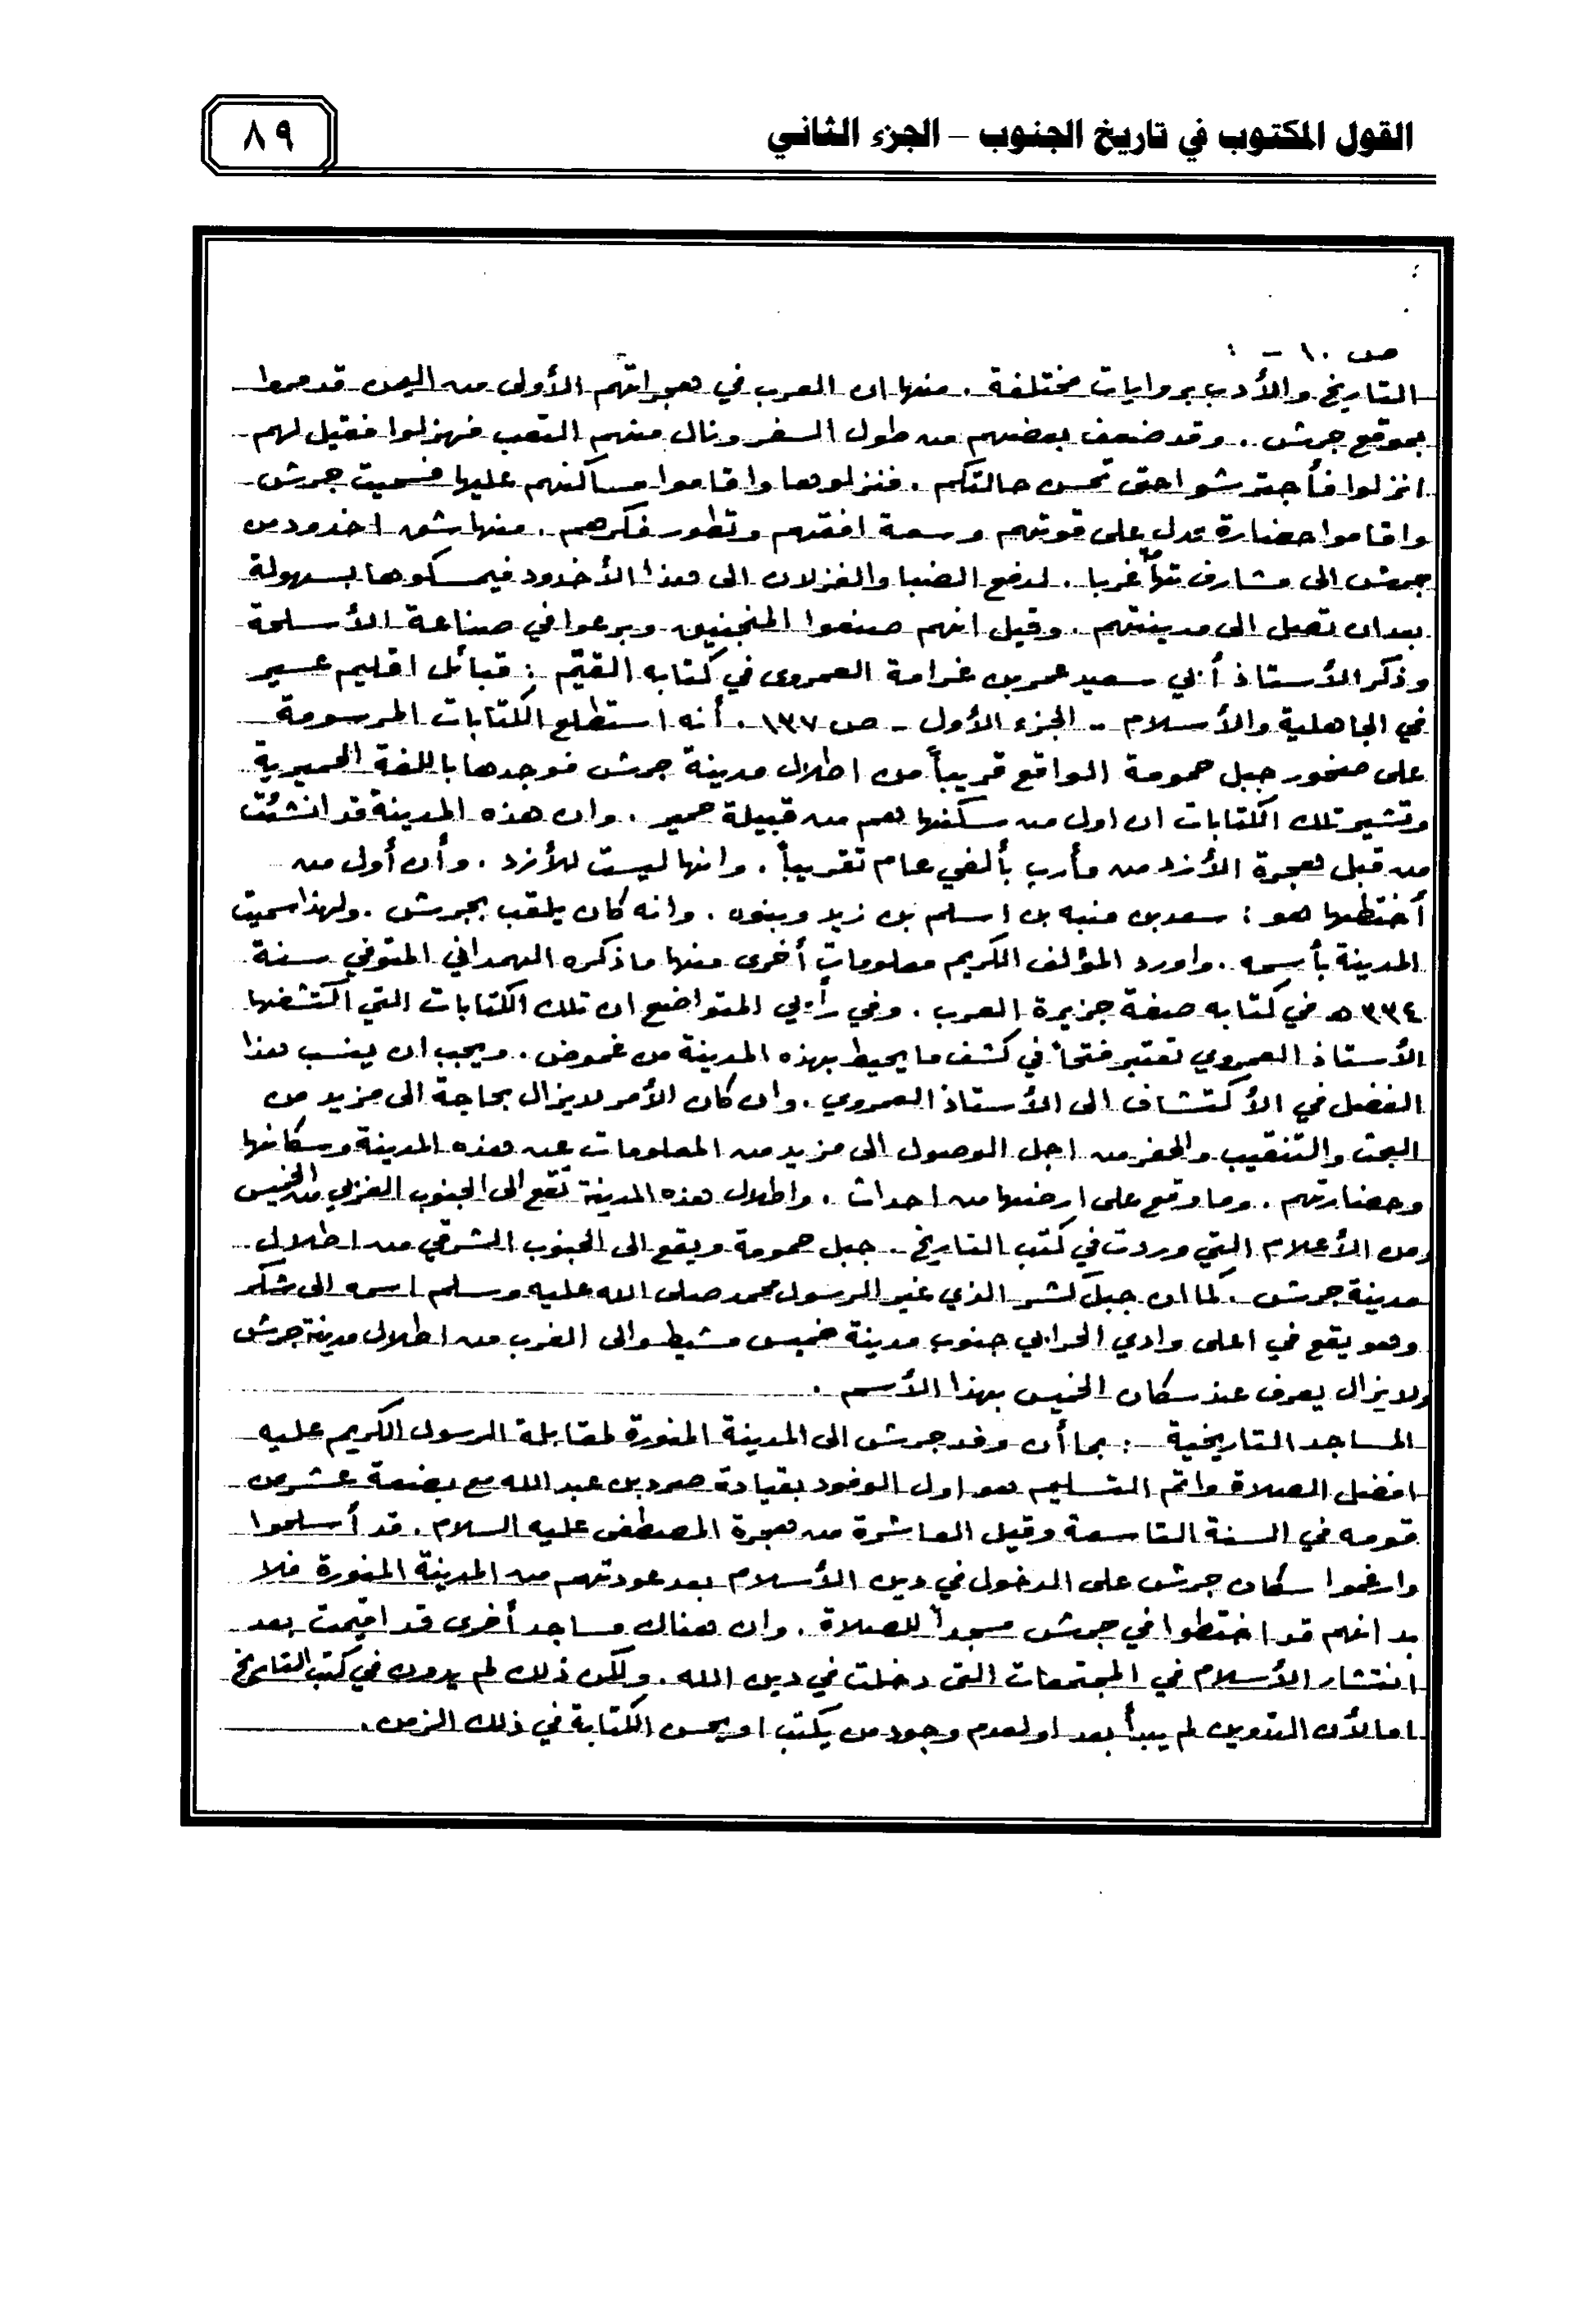 القول المكتوب في تاريخ الجنوب – الجزء الثاني
٨٩
ص ١٠ -
التاريخ والأدب بروايات مختلفة . منها ان العرب في هجراتهم الأولى من اليمن قد مروا
بموقع جرش .. وقد ضعف بعضهم من طول السفر ونال منهم التعب فهزلوا فقيل لهم
انزلوا فأجترشوا حتى تحسن حالتكم . فنزلوها واقاموا مساكنهم عليها فسميت جرش
واقاموا حضارة تدل على قوتهم وسعة افقهم وتطور فكرهم . منها شق اخدود من
جرش الى مشارف تهامة غربا . لدفع الضبا والغزلان الى هذا الأخدود فيمسكوها بسهولة
بعد ان تصل الى مدينتهم . وقيل انهم صنعوا المنجنيق وبرعوا في صناعة الأسلحة
وذكر الأستاذ أبي سعيد عمر بن غرامة العمروي في كتابه القيّم : قبائل اقليم عسير
في الجاهلية والأسلام - الجزء الأول - ص ١٣٧ . أنه استطلع الكتابات المرسومة
على صخور جبل حمومة الواقع قريباً من اطلال مدينة جرش فوجدها باللغة الحميرية
وتشير تلك الكتابات ان اول من سكنها هم من قبيلة حمير . وان هذه المدينة قد انشئت
من قبل هجرة الأزد من مأرب بألفي عام تقريباً . وانها ليست للأزد . وأن أول من
أختطها هو : سعد بن منبه بن اسلم بن زيد وبنوه . وانه كان يلقب بجرش . ولهذا سميت
المدينة بأسمه . واورد المؤلف الكريم معلومات أخرى منها ما ذكره الهمداني المتوفي سنة
٣٣٤ هـ في كتابه صفة جزيرة العرب . وفي رأيي المتواضع ان تلك الكتابات التي اكتشفها
الأستاذ العمروي تعتبر فتحاً في كشف ما يحيط بهذه المدينة من غموض . ويجب ان ينسب هذا
الفضل في الأكتشاف الى الأستاذ العمروي . وان كان الأمر لايزال بحاجة الى مزيد من
البحث والتنقيب والحفر من اجل الوصول الى مزيد من المعلومات عن هذه المدينة وسكانها
وحضارتهم . وما وقع على ارضها من احداث . واطلال هذه المدينة تقع الى الجنوب الغربي من الخميس
ومن الأعلام التي وردت في كتب التاريخ . جبل حمومة ويقع الى الجنوب الشرقي من اطلال
مدينة جرش . كما ان جبل كشر الذي غير الرسول محمد صلى الله عليه وسلم اسمه الى شكر
وهو يقع في اعلى وادي الحرابي جنوب مدينة خميس مشيط والى الغرب من اطلال مدينة جرش
ولايزال يعرف عند سكان الخميس بهذا الأسم .
المساجد التاريخية : بما أن وفد جرش الى المدينة المنورة لمقابلة الرسول الكريم عليه
افضل الصلاة واتم التسليم هو اول الوفود بقيادة صرد بن عبد الله مع بضعة عشر من
قومه في السنة التاسعة وقيل العاشرة من هجرة المصطفى عليه السلام . قد أسلموا
وارغموا سكان جرش على الدخول في دين الأسلام بعد عودتهم من المدينة المنورة فلا
بد انهم قد اختطوا في جرش مسجداً للصلاة . وان هناك مساجد أخرى قد اقيمت بعد
انتشار الأسلام في المجتمعات التي دخلت في دين الله . ولكن ذلك لم يدون في كتب التاريخ
اما لأن التدوين لم يبدأ بعد او لعدم وجود من يكتب او يحسن الكتابة في ذلك الزمن .